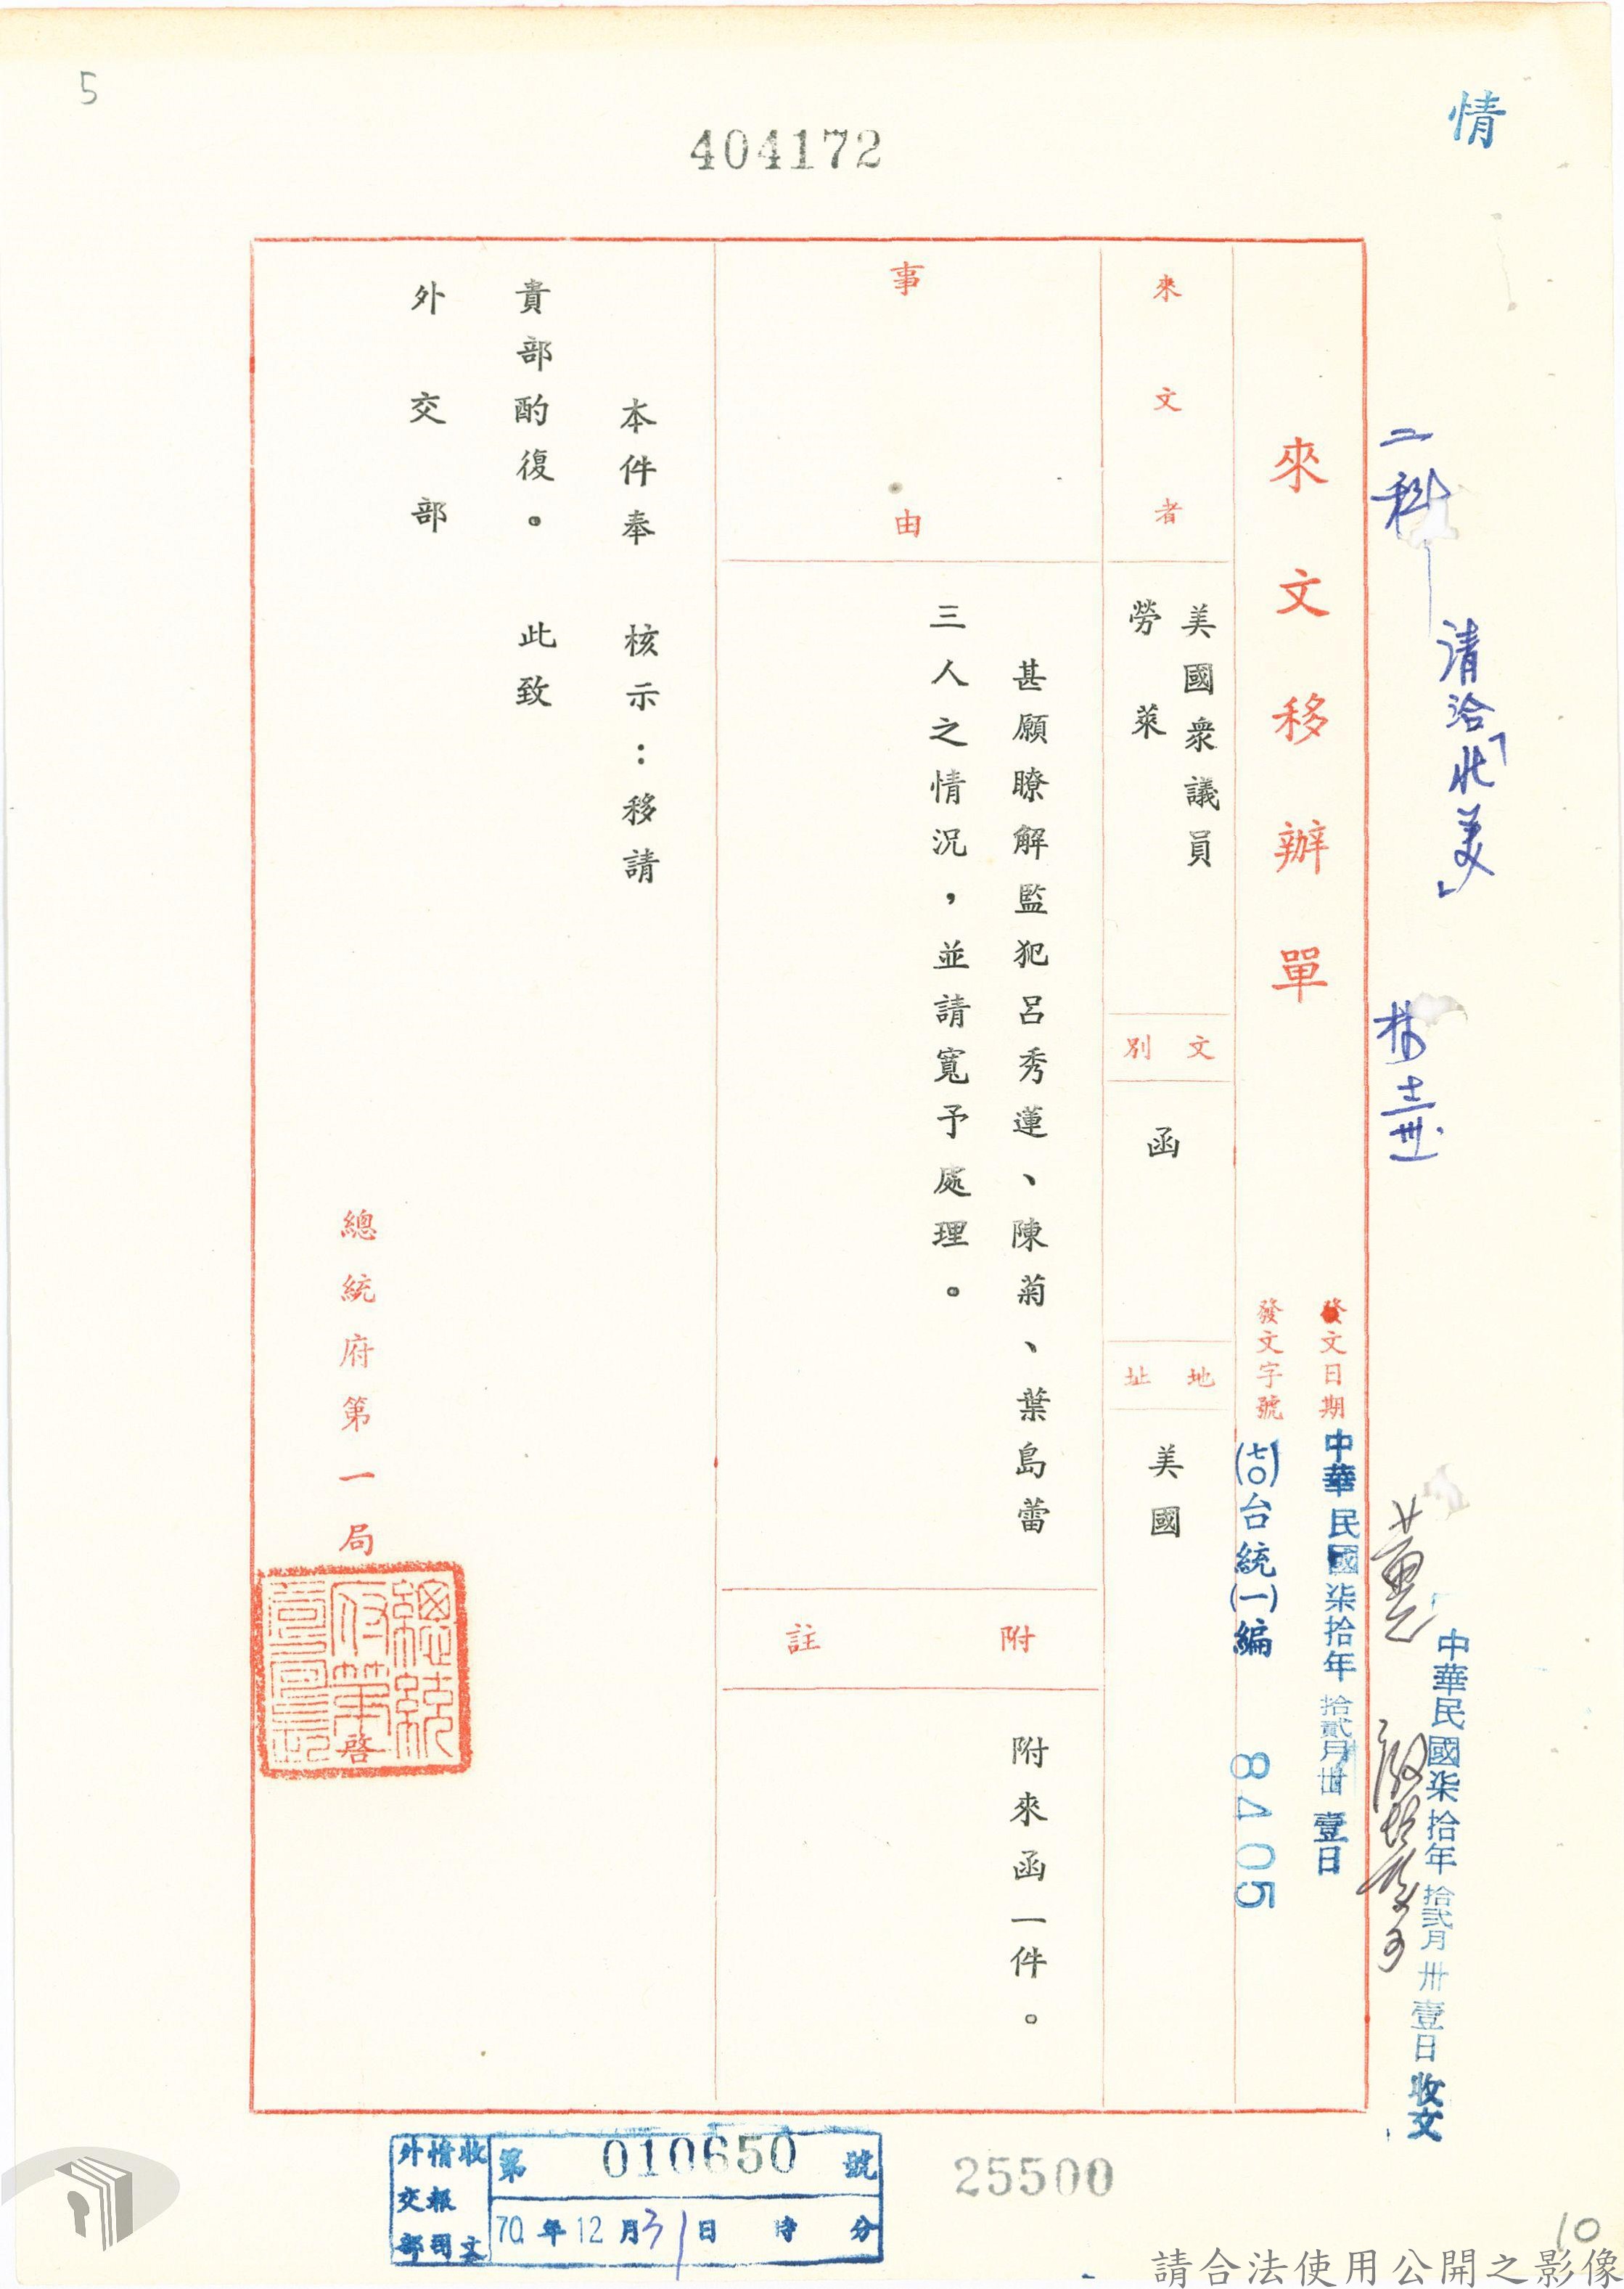 5
404172
情
二科
請洽「北美」
中華民國柒拾年拾貳月卅壹日收文
來文移辦單
發文日期 中華民國柒拾年拾貳月卅壹日
發文字號 (七〇)台統(一)編 8405
來文者
美國衆議員
勞萊
文別
函
地址
美國
事由
甚願瞭解監犯呂秀蓮、陳菊、葉島蕾
三人之情況，並請寬予處理。
附註
附來函一件。
本件奉 核示：移請
貴部酌復。 此致
外交部
總統府第一局
啓
外交部
情報司
收文
第 010650 號
70年12月31日 時 分
25500
10
請合法使用公開之影像